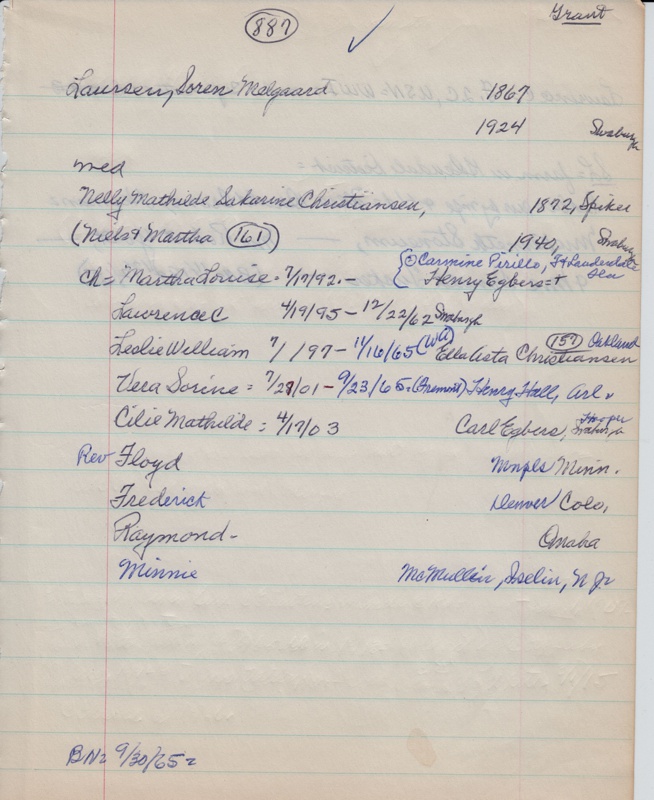 Grant
887
Laursen, Soren Molgaard 1867
1924 Snaburgh
med
Nelly Mathilde Sakarine Christiansen, 1872, Spiker
(Niels & Martha 161) 1940, Snaburgh
Ch= Martha Louise = 7/17/92.- { Carmine Pirillo, Ft Lauderdale Fla
Henry Egbers =+
Lawrence C 4/19/95 - 12/22/62 Snaburgh
Leslie William 7/ /97 - 11/16/65 (WA) Ella Asta Christiansen 157 Oakland
Vera Sorine = 7/27/01 - 9/23/65. (Fremont) Henry Hall, Arl.
Cilie Mathilde = 4/17/03 Carl Egbers, Hooper
Rev Floyd Mnpls Minn.
Frederick Denver Colo,
Raymond - Omaha
Minnie McMullen, Iselin, N Jr
BN= 9/30/65=